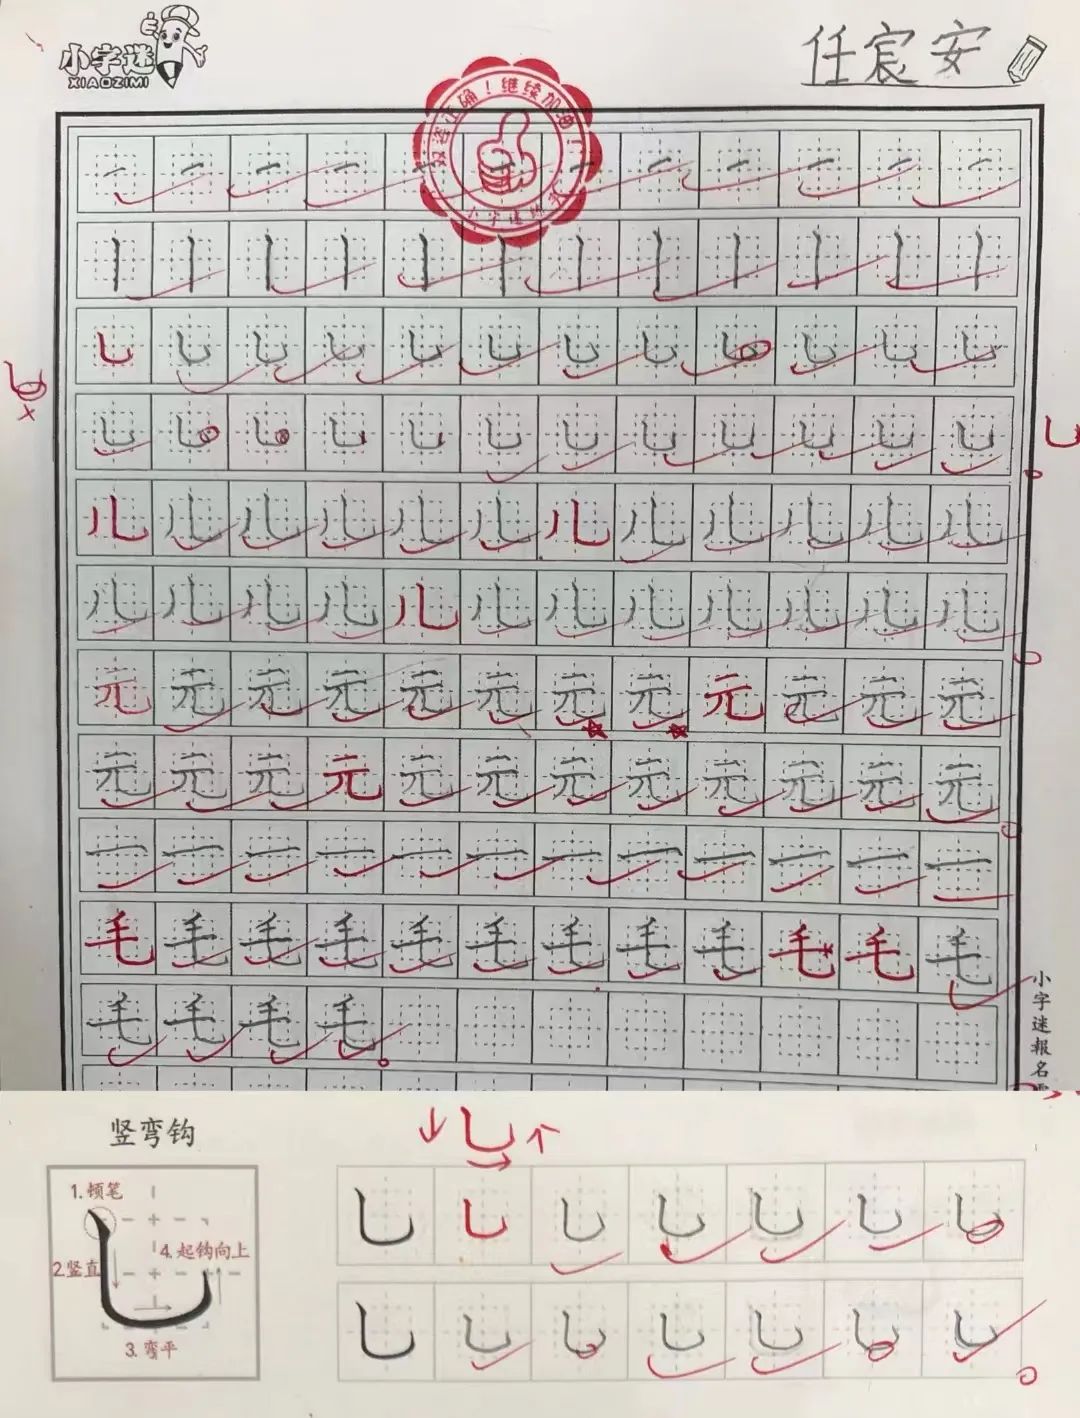 小字迷
XIAOZIMI
任宸安
双姿正确！继续加油！
一 一 一 一 一 一 一 一 一 一 一 一
丨 丨 丨 丨 丨 丨 丨 丨 丨 丨 丨 丨
乚 乚 乚 乚 乚 乚 乚 乚 乚 乚 乚 乚
乚 乚 乚 乚 乚 乚 乚 乚 乚 乚 乚 乚
儿 儿 儿 儿 儿 儿 儿 儿 儿 儿 儿 儿
儿 儿 儿 儿 儿 儿 儿 儿 儿 儿 儿 儿
元 元 元 元 元 元 元 元 元 元 元 元
元 元 元 元 元 元 元 元 元 元 元 元
一 一 一 一 一 一 一 一 一 一 一 一
毛 毛 毛 毛 毛 毛 毛 毛 毛 毛 毛 毛
毛 毛 毛 毛
小字迷報名
竖弯钩
1.顿笔
2.竖直
4.起钩向上
3.弯平
乚 乚 乚 乚 乚 乚 乚
乚 乚 乚 乚 乚 乚 乚